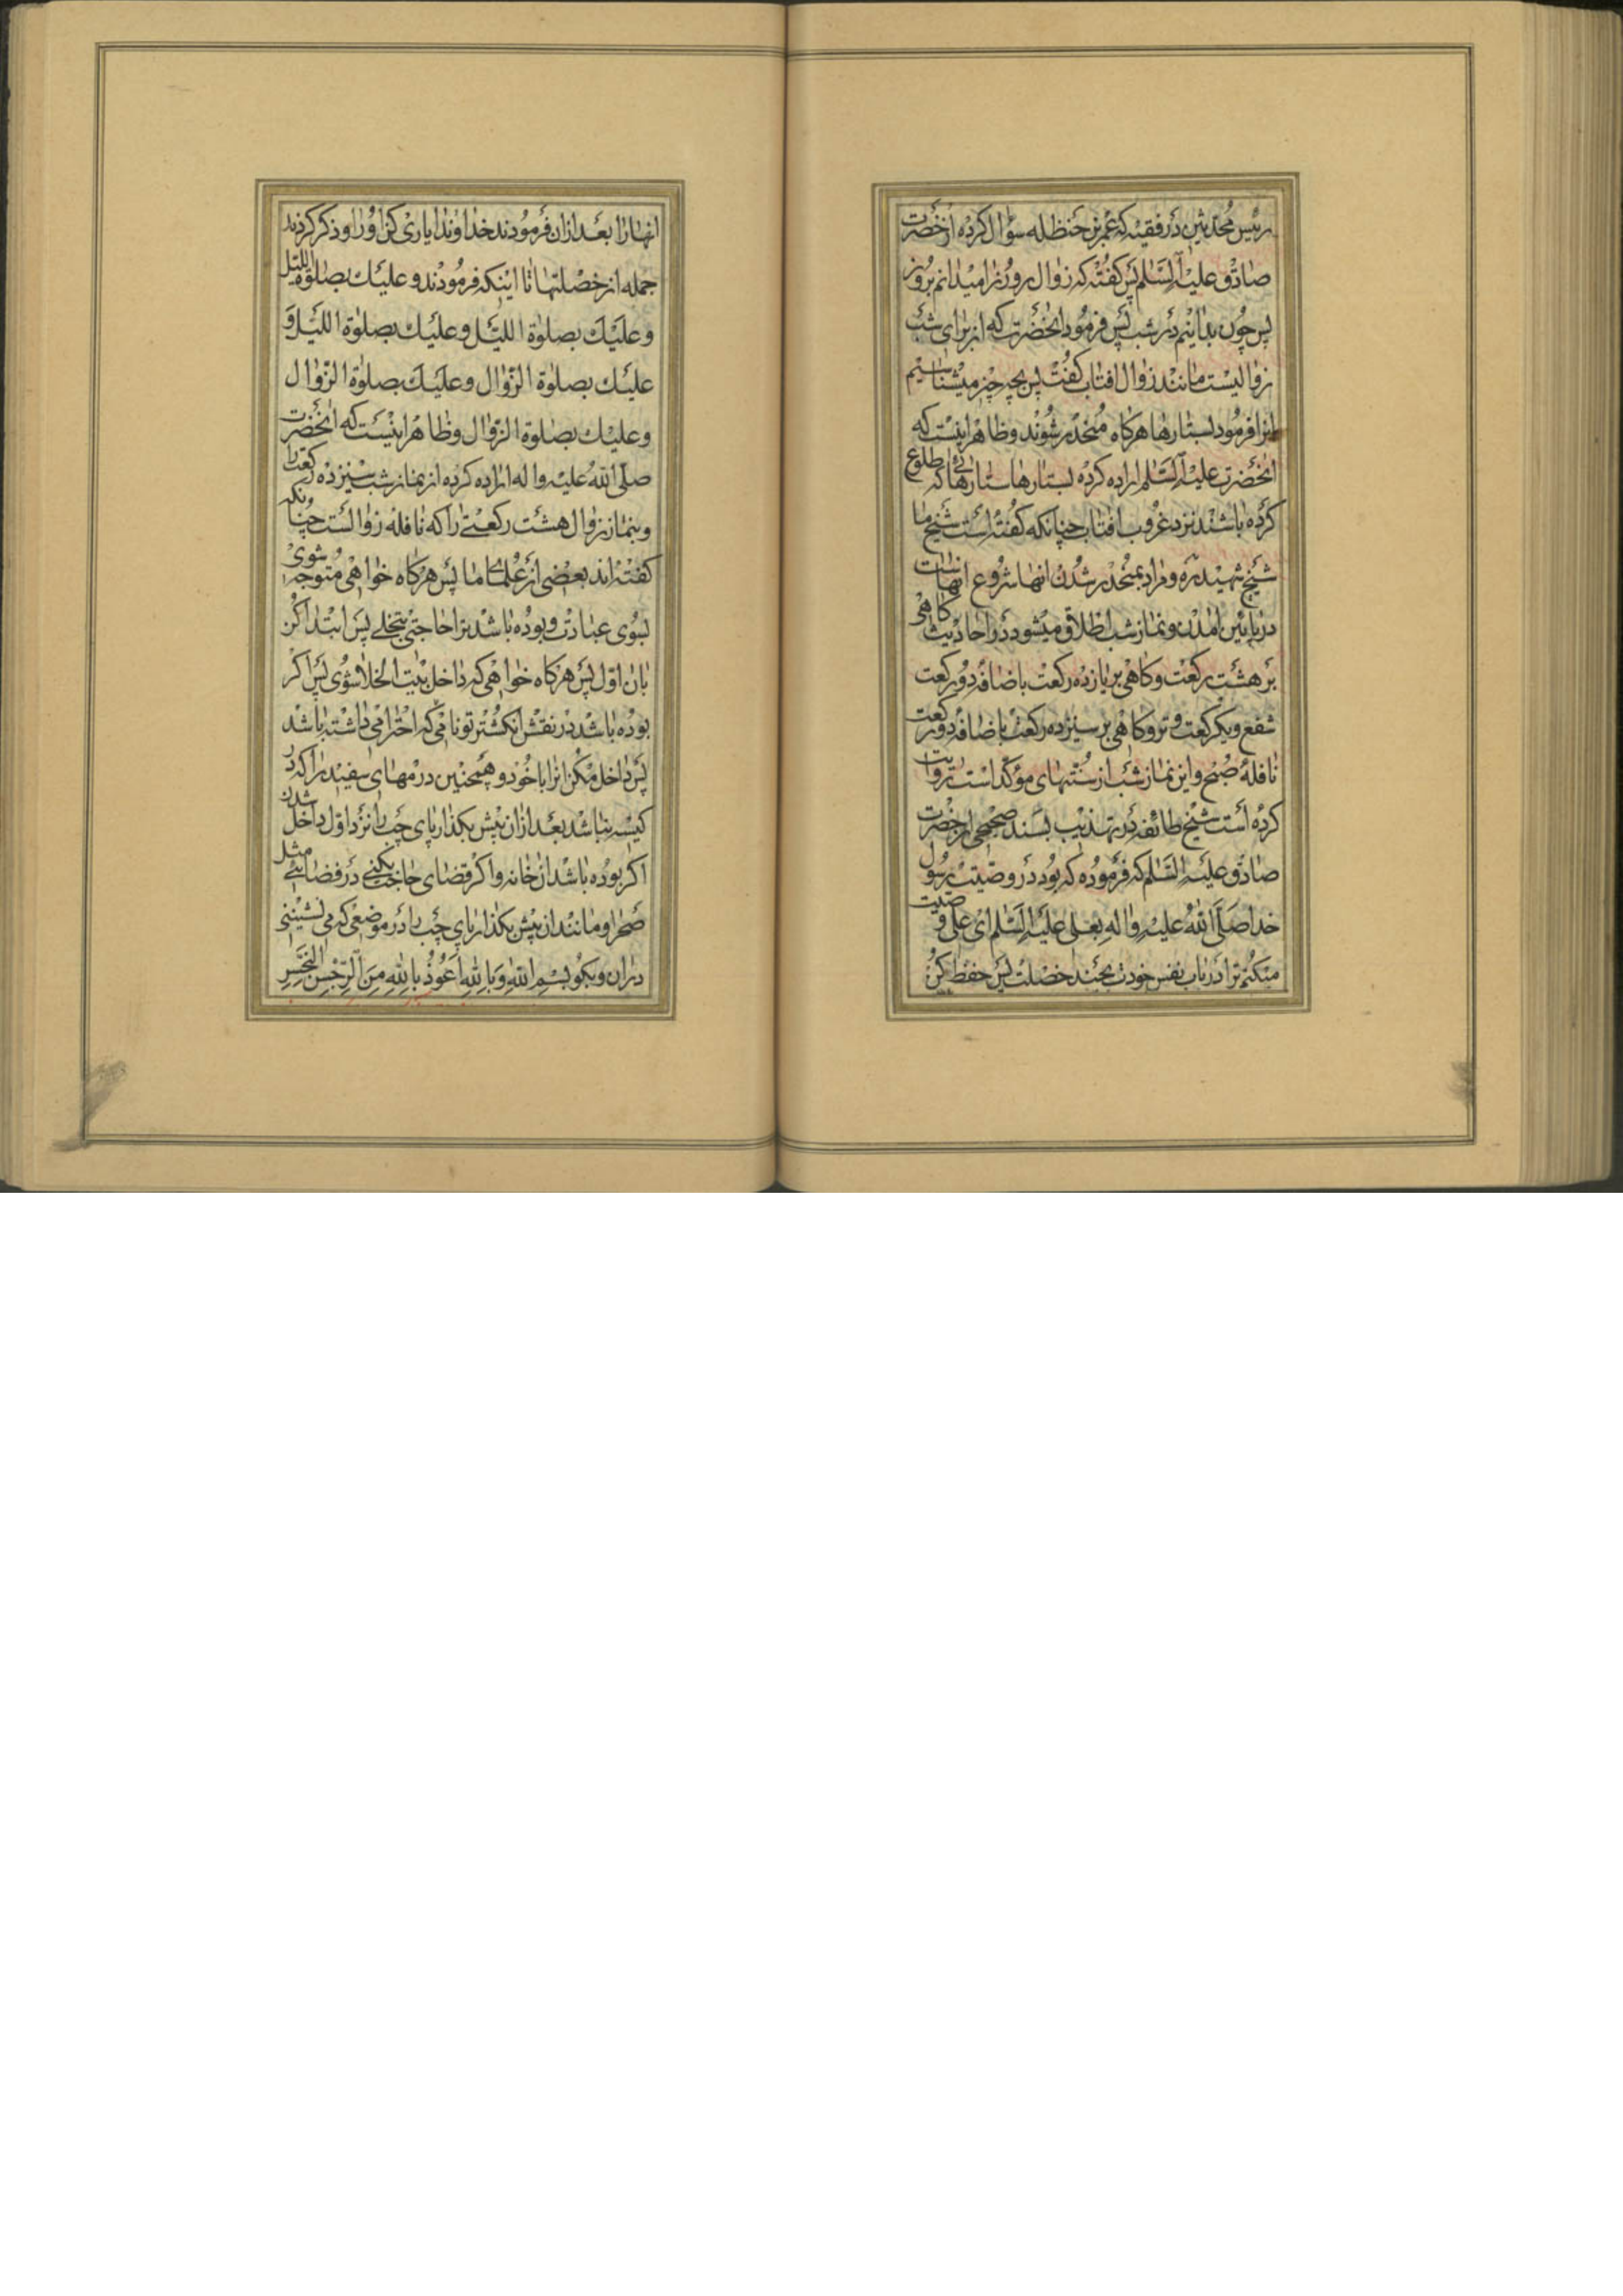 رئیس محدثین در فقیه که عمر بن حنظله سؤال کرده از حضرت
صادق علیه السلام پس گفته که زوال روز را میدانم بروز
پس چون بدانیم در شب پس فرمود انحضرت که از برای شب
زوالیست مانند زوال افتاب گفت پس بچه چیز میشناسیم
انرا فرمود بستارها هر کاه منحدر شوند و ظاهر اینست که
انحضرت علیه السلام اراده کرده بستارها ستارهائی که طلوع
کرده باشند نزد غروب افتاب چنانکه گفته است شیخ ما
شیخ شهید ره و مراد بمنحدر شدن انها شروع انهاست
در پایین امدن و نماز شب اطلاق میشود در احادیث کاهی
بر هشت رکعت و کاهی بر یازده رکعت باضافه دو رکعت
شفع و یکرکعت وتر و کاهی بر سیزده رکعت باضافه دو رکعت
نافلهٔ صبح و این نماز شب از سنتهای مؤکد است روایت
کرده است شیخ طائفه در تهذیب بسند صحیحی از حضرت
صادق علیه السلام که فرموده که بود در وصیت رسول
خدا صلی الله علیه واله بعلی علیه السلام ای علی وصیت
میکنم ترا در باب نفس خودت بچند خصلت پس حفظ کن
انها را بعد از ان فرمودند خداوندا یاری کن او را و ذکر کردند
جمله از خصلتها تا اینکه فرمودند و علیک بصلوة اللیل
و علیک بصلوة اللیل و علیک بصلوة اللیل و
علیک بصلوة الزوال و علیک بصلوة الزوال
و علیک بصلوة الزوال و ظاهر اینست که انحضرت
صلی الله علیه واله اراده کرده از نماز شب سیزده رکعت را
و بنماز زوال هشت رکعتی را که نافله زوالست چنانکه
گفته اند بعضی از علمای ما پس هر کاه خواهی متوجه شوی
بسوی عبادت و بوده باشد ترا حاجتی بتخلی پس ابتدا کن
بان اول پس هر کاه خواهی که داخل بیت الخلا شوی پس اکر
بوده باشد در نقش انکشتر تو نامی که احترامی داشته باشد
پس داخل مکن انرا با خود و همچنین درمهای سفید را که در
کیسه نباشد بعد از ان پیش بکذار پای چپ را نزد اول داخل شدن
اکر بوده باشد ان خانه و اکر قضای حاجت بکنی در فضائی مثل
صحرا و مانند ان پیش بکذار پای چپ را در موضعی که می نشینی
در ان و بکو بسم الله و بالله اعوذ بالله من الرجس النجس